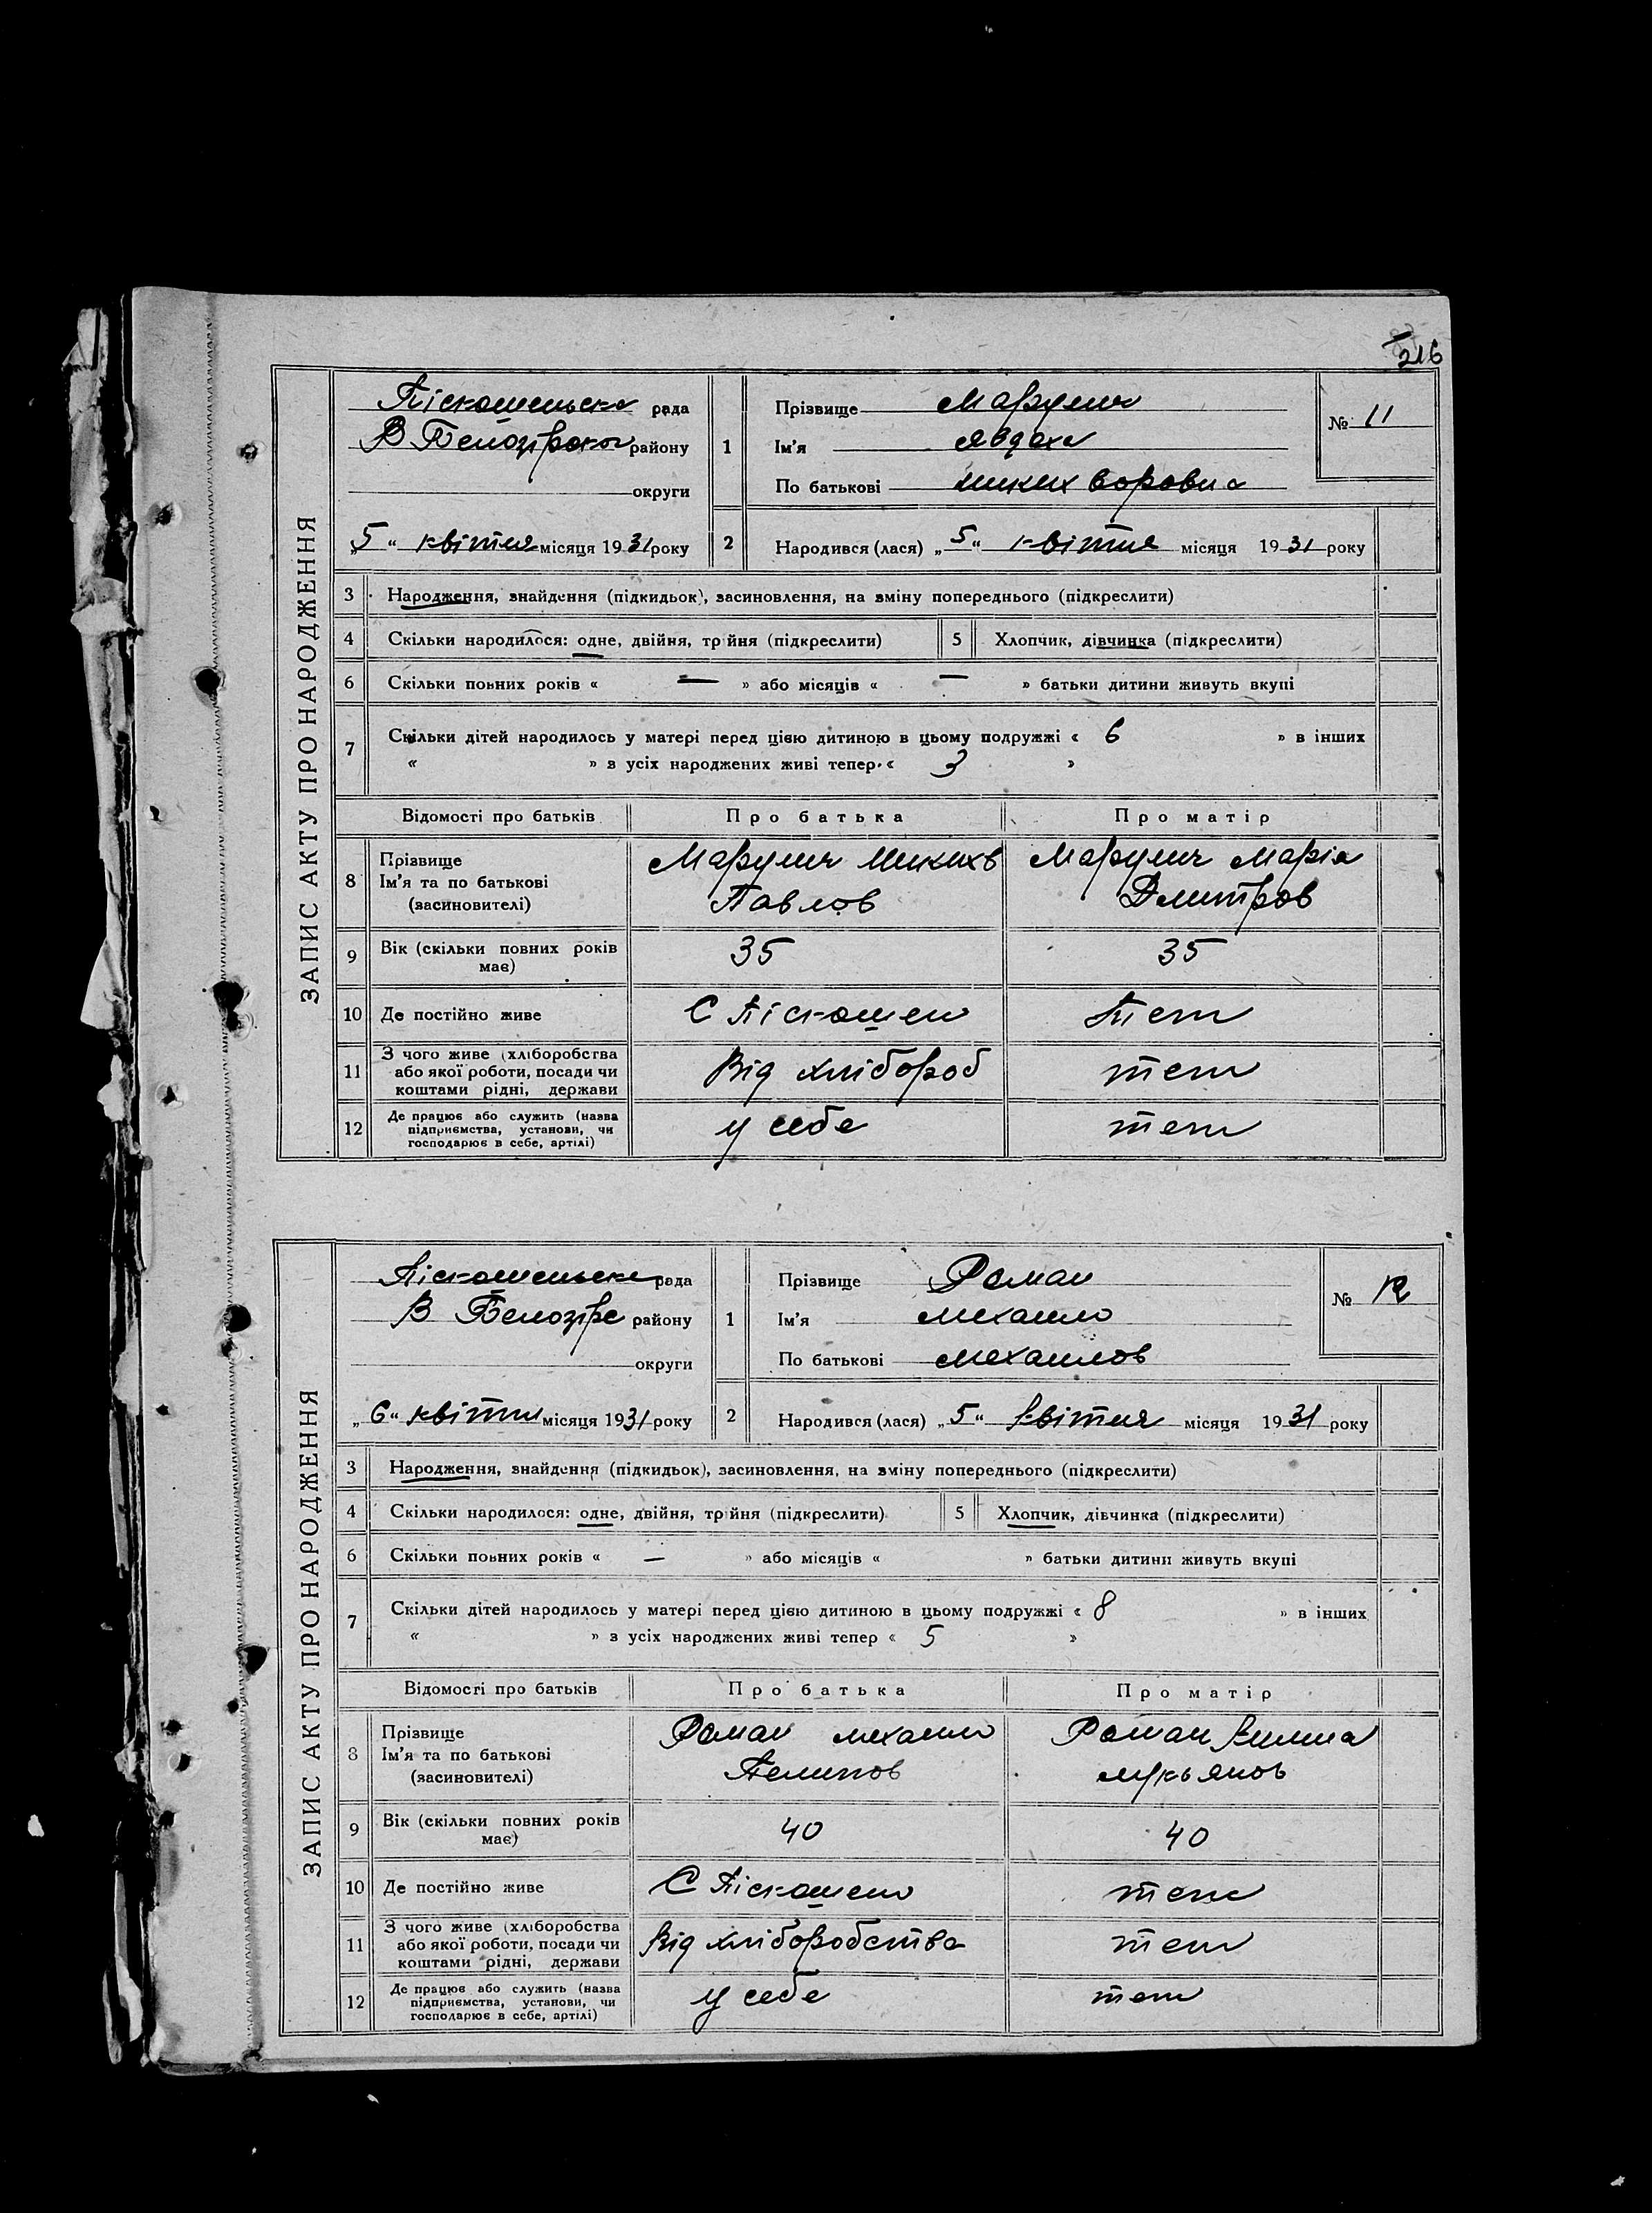 216
ЗАПИС АКТУ ПРО НАРОДЖЕННЯ
Піскошенська рада
В Білозірсько району
округи
„5“ квітня місяця 1931 року
1
Прізвище
Ім’я Явдоха
По батькові
№ 11
2 Народився (лася) „5“ квітня місяця 1931 року
3 Народження, знайдення (підкидьок), засиновлення, на зміну попереднього (підкреслити)
4 Скільки народилося: одне, двійня, трійня (підкреслити) 5 Хлопчик, дівчинка (підкреслити)
6 Скільки повних років « — » або місяців « — » батьки дитини живуть вкупі
7 Скільки дітей народилось у матері перед цією дитиною в цьому подружжі « 6 » в інших
« » з усіх народжених живі тепер « 3 »
Відомості про батьків Про батька Про матір
8 Прізвище
Ім’я та по батькові
(засновителі)
Павлов
Марія
Дмитров
9 Вік (скільки повних років має) 35 35
10 Де постійно живе С Піскошен тет
11 З чого живе (хліборобства
або якої роботи, посади чи
коштами рідні, держави
Від хлібороб тет
12 Де працює або служить (назва
підприємства, установи, чи
господарює в себе, артілі)
у себе тет
ЗАПИС АКТУ ПРО НАРОДЖЕННЯ
Піскошенська рада
В району
округи
„6“ квітня місяця 1931 року
1
Прізвище Роман
Ім’я Механло
По батькові Механлов
№ 12
2 Народився (лася) „5“ квітня місяця 1931 року
3 Народження, знайдення (підкидьок), засиновлення, на зміну попереднього (підкреслити)
4 Скільки народилося: одне, двійня, трійня (підкреслити) 5 Хлопчик, дівчинка (підкреслити)
6 Скільки повних років « — » або місяців « » батьки дитини живуть вкупі
7 Скільки дітей народилось у матері перед цією дитиною в цьому подружжі « 8 » в інших
« » з усіх народжених живі тепер « 5 »
Відомості про батьків Про батька Про матір
8 Прізвище
Ім’я та по батькові
(засиновителі)
Роман
Роман
Лукьянов
9 Вік (скільки повних років має) 40 40
10 Де постійно живе С Піскошен тет
11 З чого живе (хліборобства
або якої роботи, посади чи
коштами рідні, держави
Від хліборобства тет
12 Де працює або служить (назва
підприємства, установи, чи
господарює в себе, артілі)
у себе тет